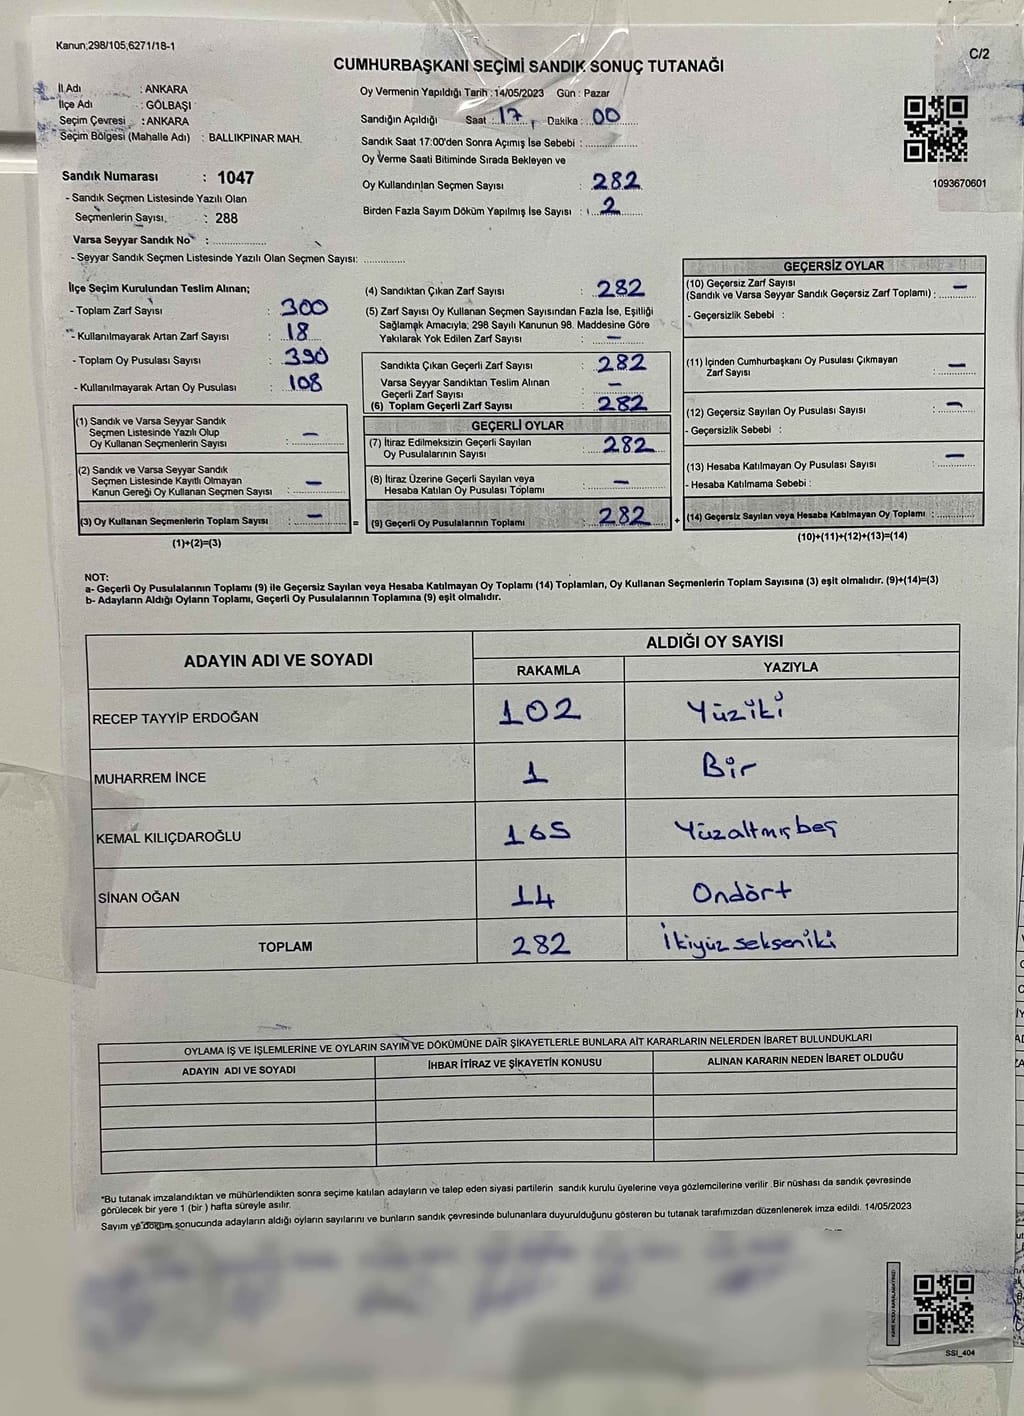 Kanun;298/105,6271/18-1
C/2
CUMHURBAŞKANI SEÇİMİ SANDIK SONUÇ TUTANAĞI
İl Adı : ANKARA
İlçe Adı : GÖLBAŞI
Seçim Çevresi : ANKARA
Seçim Bölgesi (Mahalle Adı) : BALLIKPINAR MAH.
Sandık Numarası : 1047
- Sandık Seçmen Listesinde Yazılı Olan
Seçmenlerin Sayısı : 288
Varsa Seyyar Sandık No :
- Seyyar Sandık Seçmen Listesinde Yazılı Olan Seçmen Sayısı:
Oy Vermenin Yapıldığı Tarih : 14/05/2023 Gün : Pazar
Sandığın Açıldığı Saat : 17, Dakika : 00
Sandık Saat 17:00'den Sonra Açımış İse Sebebi :
Oy Verme Saati Bitiminde Sırada Bekleyen ve
Oy Kullandırılan Seçmen Sayısı : 282
Birden Fazla Sayım Döküm Yapılmış İse Sayısı : 2
1093670601
İlçe Seçim Kurulundan Teslim Alınan;
- Toplam Zarf Sayısı : 300
- Kullanılmayarak Artan Zarf Sayısı : 18
- Toplam Oy Pusulası Sayısı : 390
- Kullanılmayarak Artan Oy Pusulası : 108
(1) Sandık ve Varsa Seyyar Sandık
Seçmen Listesinde Yazılı Olup
Oy Kullanan Seçmenlerin Sayısı : –
(2) Sandık ve Varsa Seyyar Sandık
Seçmen Listesinde Kayıtlı Olmayan
Kanun Gereği Oy Kullanan Seçmen Sayısı : –
(3) Oy Kullanan Seçmenlerin Toplam Sayısı : –
(1)+(2)=(3)
=
(4) Sandıktan Çıkan Zarf Sayısı : 282
(5) Zarf Sayısı Oy Kullanan Seçmen Sayısından Fazla İse, Eşitliği
Sağlamak Amacıyla; 298 Sayılı Kanunun 98. Maddesine Göre
Yakılarak Yok Edilen Zarf Sayısı : –
Sandıkta Çıkan Geçerli Zarf Sayısı : 282
Varsa Seyyar Sandıktan Teslim Alınan
Geçerli Zarf Sayısı : –
(6) Toplam Geçerli Zarf Sayısı : 282
GEÇERLİ OYLAR
(7) İtiraz Edilmeksizin Geçerli Sayılan
Oy Pusulalarının Sayısı : 282
(8) İtiraz Üzerine Geçerli Sayılan veya
Hesaba Katılan Oy Pusulası Toplamı : –
(9) Geçerli Oy Pusulalarının Toplamı : 282
+
GEÇERSİZ OYLAR
(10) Geçersiz Zarf Sayısı
(Sandık ve Varsa Seyyar Sandık Geçersiz Zarf Toplamı) : –
- Geçersizlik Sebebi :
(11) İçinden Cumhurbaşkanı Oy Pusulası Çıkmayan
Zarf Sayısı : –
(12) Geçersiz Sayılan Oy Pusulası Sayısı : –
- Geçersizlik Sebebi :
(13) Hesaba Katılmayan Oy Pusulası Sayısı : –
- Hesaba Katılmama Sebebi :
(14) Geçersiz Sayılan veya Hesaba Katılmayan Oy Toplamı :
(10)+(11)+(12)+(13)=(14)
NOT:
a- Geçerli Oy Pusulalarının Toplamı (9) ile Geçersiz Sayılan veya Hesaba Katılmayan Oy Toplamı (14) Toplamları, Oy Kullanan Seçmenlerin Toplam Sayısına (3) eşit olmalıdır. (9)+(14)=(3)
b- Adayların Aldığı Oyların Toplamı, Geçerli Oy Pusulalarının Toplamına (9) eşit olmalıdır.
ADAYIN ADI VE SOYADI
ALDIĞI OY SAYISI
RAKAMLA YAZIYLA
RECEP TAYYİP ERDOĞAN 102 Yüziki
MUHARREM İNCE 1 Bir
KEMAL KILIÇDAROĞLU 165 Yüzaltmışbeş
SİNAN OĞAN 14 Ondört
TOPLAM 282 İkiyüz sekseniki
OYLAMA İŞ VE İŞLEMLERİNE VE OYLARIN SAYIM VE DÖKÜMÜNE DAİR ŞİKAYETLERLE BUNLARA AİT KARARLARIN NELERDEN İBARET BULUNDUKLARI
ADAYIN ADI VE SOYADI İHBAR İTİRAZ VE ŞİKAYETİN KONUSU ALINAN KARARIN NEDEN İBARET OLDUĞU
*Bu tutanak imzalandıktan ve mühürlendikten sonra seçime katılan adayların ve talep eden siyasi partilerin sandık kurulu üyelerine veya gözlemcilerine verilir .Bir nüshası da sandık çevresinde
görülecek bir yere 1 (bir ) hafta süreyle asılır.
Sayım ve döküm sonucunda adayların aldığı oyların sayılarını ve bunların sandık çevresinde bulunanlara duyurulduğunu gösteren bu tutanak tarafımızdan düzenlenerek imza edildi. 14/05/2023
SSI_404